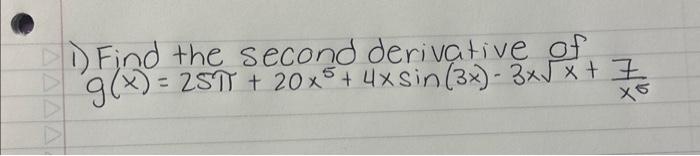 1) Find the second derivative of
g(x) = 25π + 20x⁵ + 4x sin(3x) - 3x√x + 7/x⁵